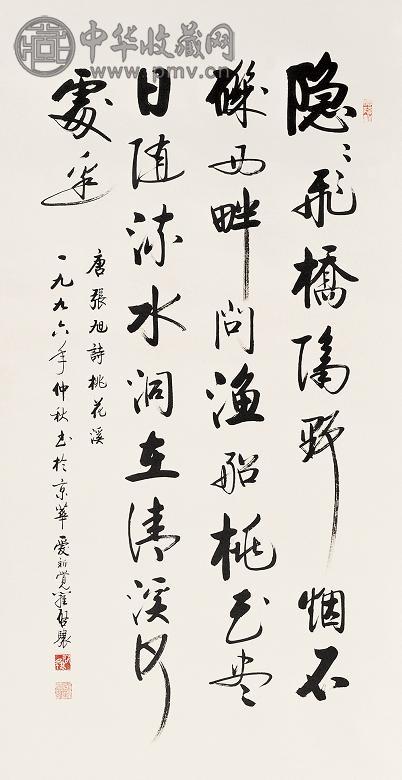 中华收藏网
www.pmv.cn
隐〻飛橋隔野烟石
磯西畔问渔船桃花尽
日随流水洞在清溪何
處边
唐張旭詩桃花溪
一九九六年仲秋书於京華 愛新覺羅啓驤